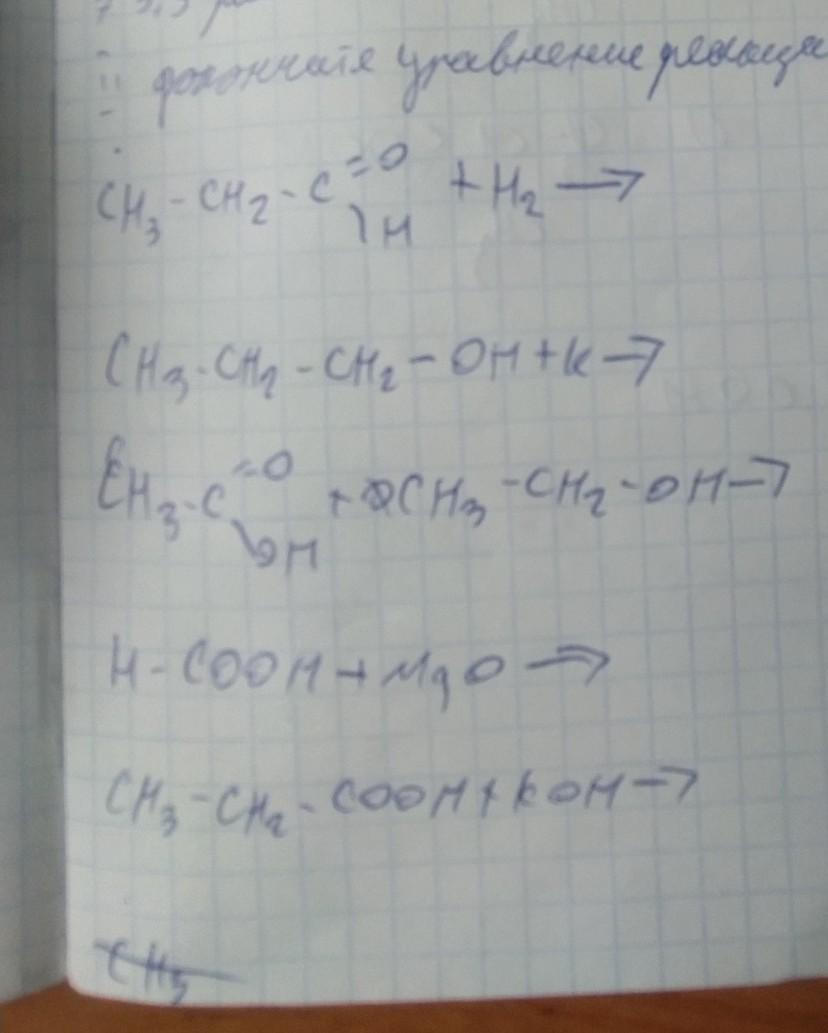 докончите уравнение реакции
CH₃-CH₂-C=O + H₂ →
\H
CH₃-CH₂-CH₂-OH+K→
CH₃-C=O + CH₃-CH₂-OH→
\OH
H-COOH+MgO→
CH₃-CH₂-COOH+KOH→
CH₃